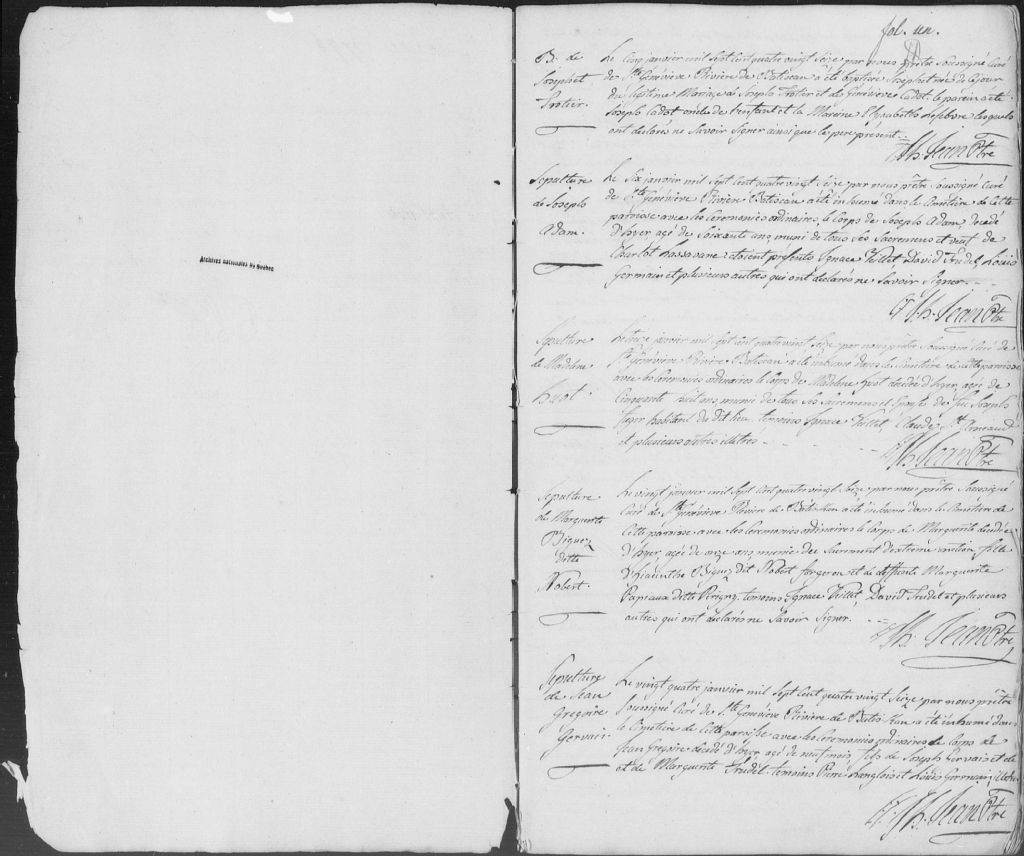 Archives nationales du Québec
fol. un.
B. de
Josephet
Trotier.
Le cinq janvier mil sept cent quatre vingt seize par nous prêtre soussigné curé
de Ste Geneviève Rivière De Batiscan a été baptisé Josephet né de ce jour
du légitime Mariage de Joseph Trotier et de Geneviève Cadot. le parein a été
Joseph Cadot oncle de l'enfant et la Mareine Elizabeth Lefebvre lesquels
ont declarés ne Savoir Signer ainsi que le pere présent.
Jean Ptre
Sepulture
de Joseph
Adam.
Le Six janvier mil Sept Cent quatre vingt Seize par nous prêtre Soussigné Curé
de Ste Geneviève Rivière Batiscan a été inhumé dans le Cimétiere de Cette
paroisse avec les Ceremonies ordinaires le Corps de Joseph Adam, décédé
d'hyer agé de Soixante ans, muni de tous les Sacremens et veuf de
Charlot étoient présents Ignace Veillet David Trudel, Louis
Germain et plusieurs autres qui ont declarés ne Savoir Signer
Jean Ptre
Sepulture
de Madelene
huot.
janvier mil sept cent quatre vingt Seize par nous prêtre Soussigné Curé de
Ste Geneviève Rivière Batiscan a été inhumé dans le Cimétiere de Cette paroisse
avec les Ceremonies ordinaires le Corps de Madelene huot décédé d'hyer, agée de
Cinquante huit ans muni de tous les Sacremens et Epouse de feu Joseph
habitant du dit lieu. temoins Ignace Veillet, Claude St
et plusieurs autres
Jean Ptre
Sepulture
de Marguerite
Biguez
ditte
Nobert.
Le vingt janvier mil Sept Cent quatre vingt Seize par nous prêtre Soussigné
Curé de Ste Geneviève Rivière de Batiskan a été inhumé dans le Cimétiere de
Cette paroisse avec les Ceremonies ordinaires le Corps de Marguerite décédée
d'hyer, agée de onze ans munie du Sacrement d'extreme onction, fille
d'hiacinthe Biguez dit Nobert forgeron et de deffunte Marguerite
Papeaux ditte Perigny. temoins Ignace Veillet, David Trudel et plusieurs
autres qui ont declarés ne Savoir Signer.
Jean Ptre
Sepulture
de Jean
Gregoire
Gervais.
Le vingt quatre janvier mil Sept Cent quatre vingt Seize par nous prêtre
Soussigné Curé de Ste Geneviève Rivière de Batiskan a été inhumé dans
le Cimétiere de Cette paroisse avec les Ceremonies ordinaires le Corps de
Jean Gregoire décédé d'hyer agé de neuf mois, fils de Joseph Gervais et de
et de Marguerite Trudel. temoins Pierre Langlois et Louis Germain,
Jean Ptre